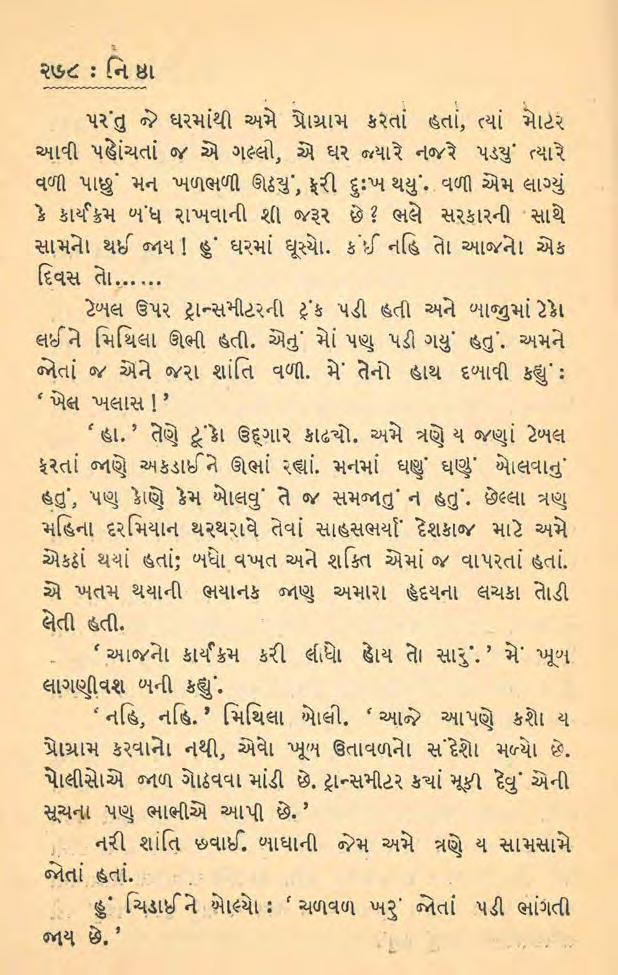 ૨૭૮ : નિષ્ઠા
પરંતુ જે ઘરમાંથી અમે પ્રોગ્રામ કરતાં હતાં, ત્યાં મોટર
આવી પહોંચતાં જ એ ગલ્લી, એ ઘર જ્યારે નજરે પડયું ત્યારે
વળી પાછું મન ખળભળી ઊઠયું, ફરી દુઃખ થયું. વળી એમ લાગ્યું
કે કાર્યક્રમ બંધ રાખવાની શી જરૂર છે ? ભલે સરકારની સાથે
સામનો થઈ જાય ! હું ઘરમાં ઘૂસ્યો. કંઈ નહિ તો આજનો એક
દિવસ તો......
ટેબલ ઉપર ટ્રાન્સમીટરની ટ્રંક પડી હતી અને બાજુમાં ટેકો
લઈને મિથિલા ઊભી હતી. એનું મોં પણ પડી ગયું હતું. અમને
જોતાં જ એને જરા શાંતિ વળી. મેં તેનો હાથ દબાવી કહ્યું :
‘ ખેલ ખલાસ ! ’
‘ હા. ’ તેણે ટૂંકો ઉદ્‌ગાર કાઢ્યો. અમે ત્રણે ય જણાં ટેબલ
ફરતાં જાણે અકડાઈને ઊભાં રહ્યાં. મનમાં ઘણું ઘણું બોલવાનું
હતું, પણ કોણે કેમ બોલવું તે જ સમજાતું ન હતું. છેલ્લા ત્રણ
મહિના દરમિયાન થરથરાવે તેવાં સાહસભર્યાં દેશકાજ માટે અમે
એકઠાં થયાં હતાં; બધો વખત અને શક્તિ એમાં જ વાપરતાં હતાં.
એ ખતમ થયાની ભયાનક જાણ અમારા હૃદયના લચકા તોડી
લેતી હતી.
‘ આજનો કાર્યક્રમ કરી લીધો હોય તો સારું. ’ મેં ખૂબ
લાગણીવશ બની કહ્યું.
‘ નહિ, નહિ. ’ મિથિલા બોલી. ‘ આજે આપણે કશો ય
પ્રોગ્રામ કરવાનો નથી, એવો ખૂબ ઉતાવળનો સંદેશો મળ્યો છે.
પોલીસોએ જાળ ગોઠવવા માંડી છે. ટ્રાન્સમીટર કયાં મૂકી દેવું એની
સૂચના પણ ભાભીએ આપી છે. ’
નરી શાંતિ છવાઈ. બાઘાની જેમ અમે ત્રણે ય સામસામે
જોતાં હતાં.
હું ચિડાઈને બોલ્યો : ‘ ચળવળ ખરું જોતાં પડી ભાંગતી
જાય છે. ’